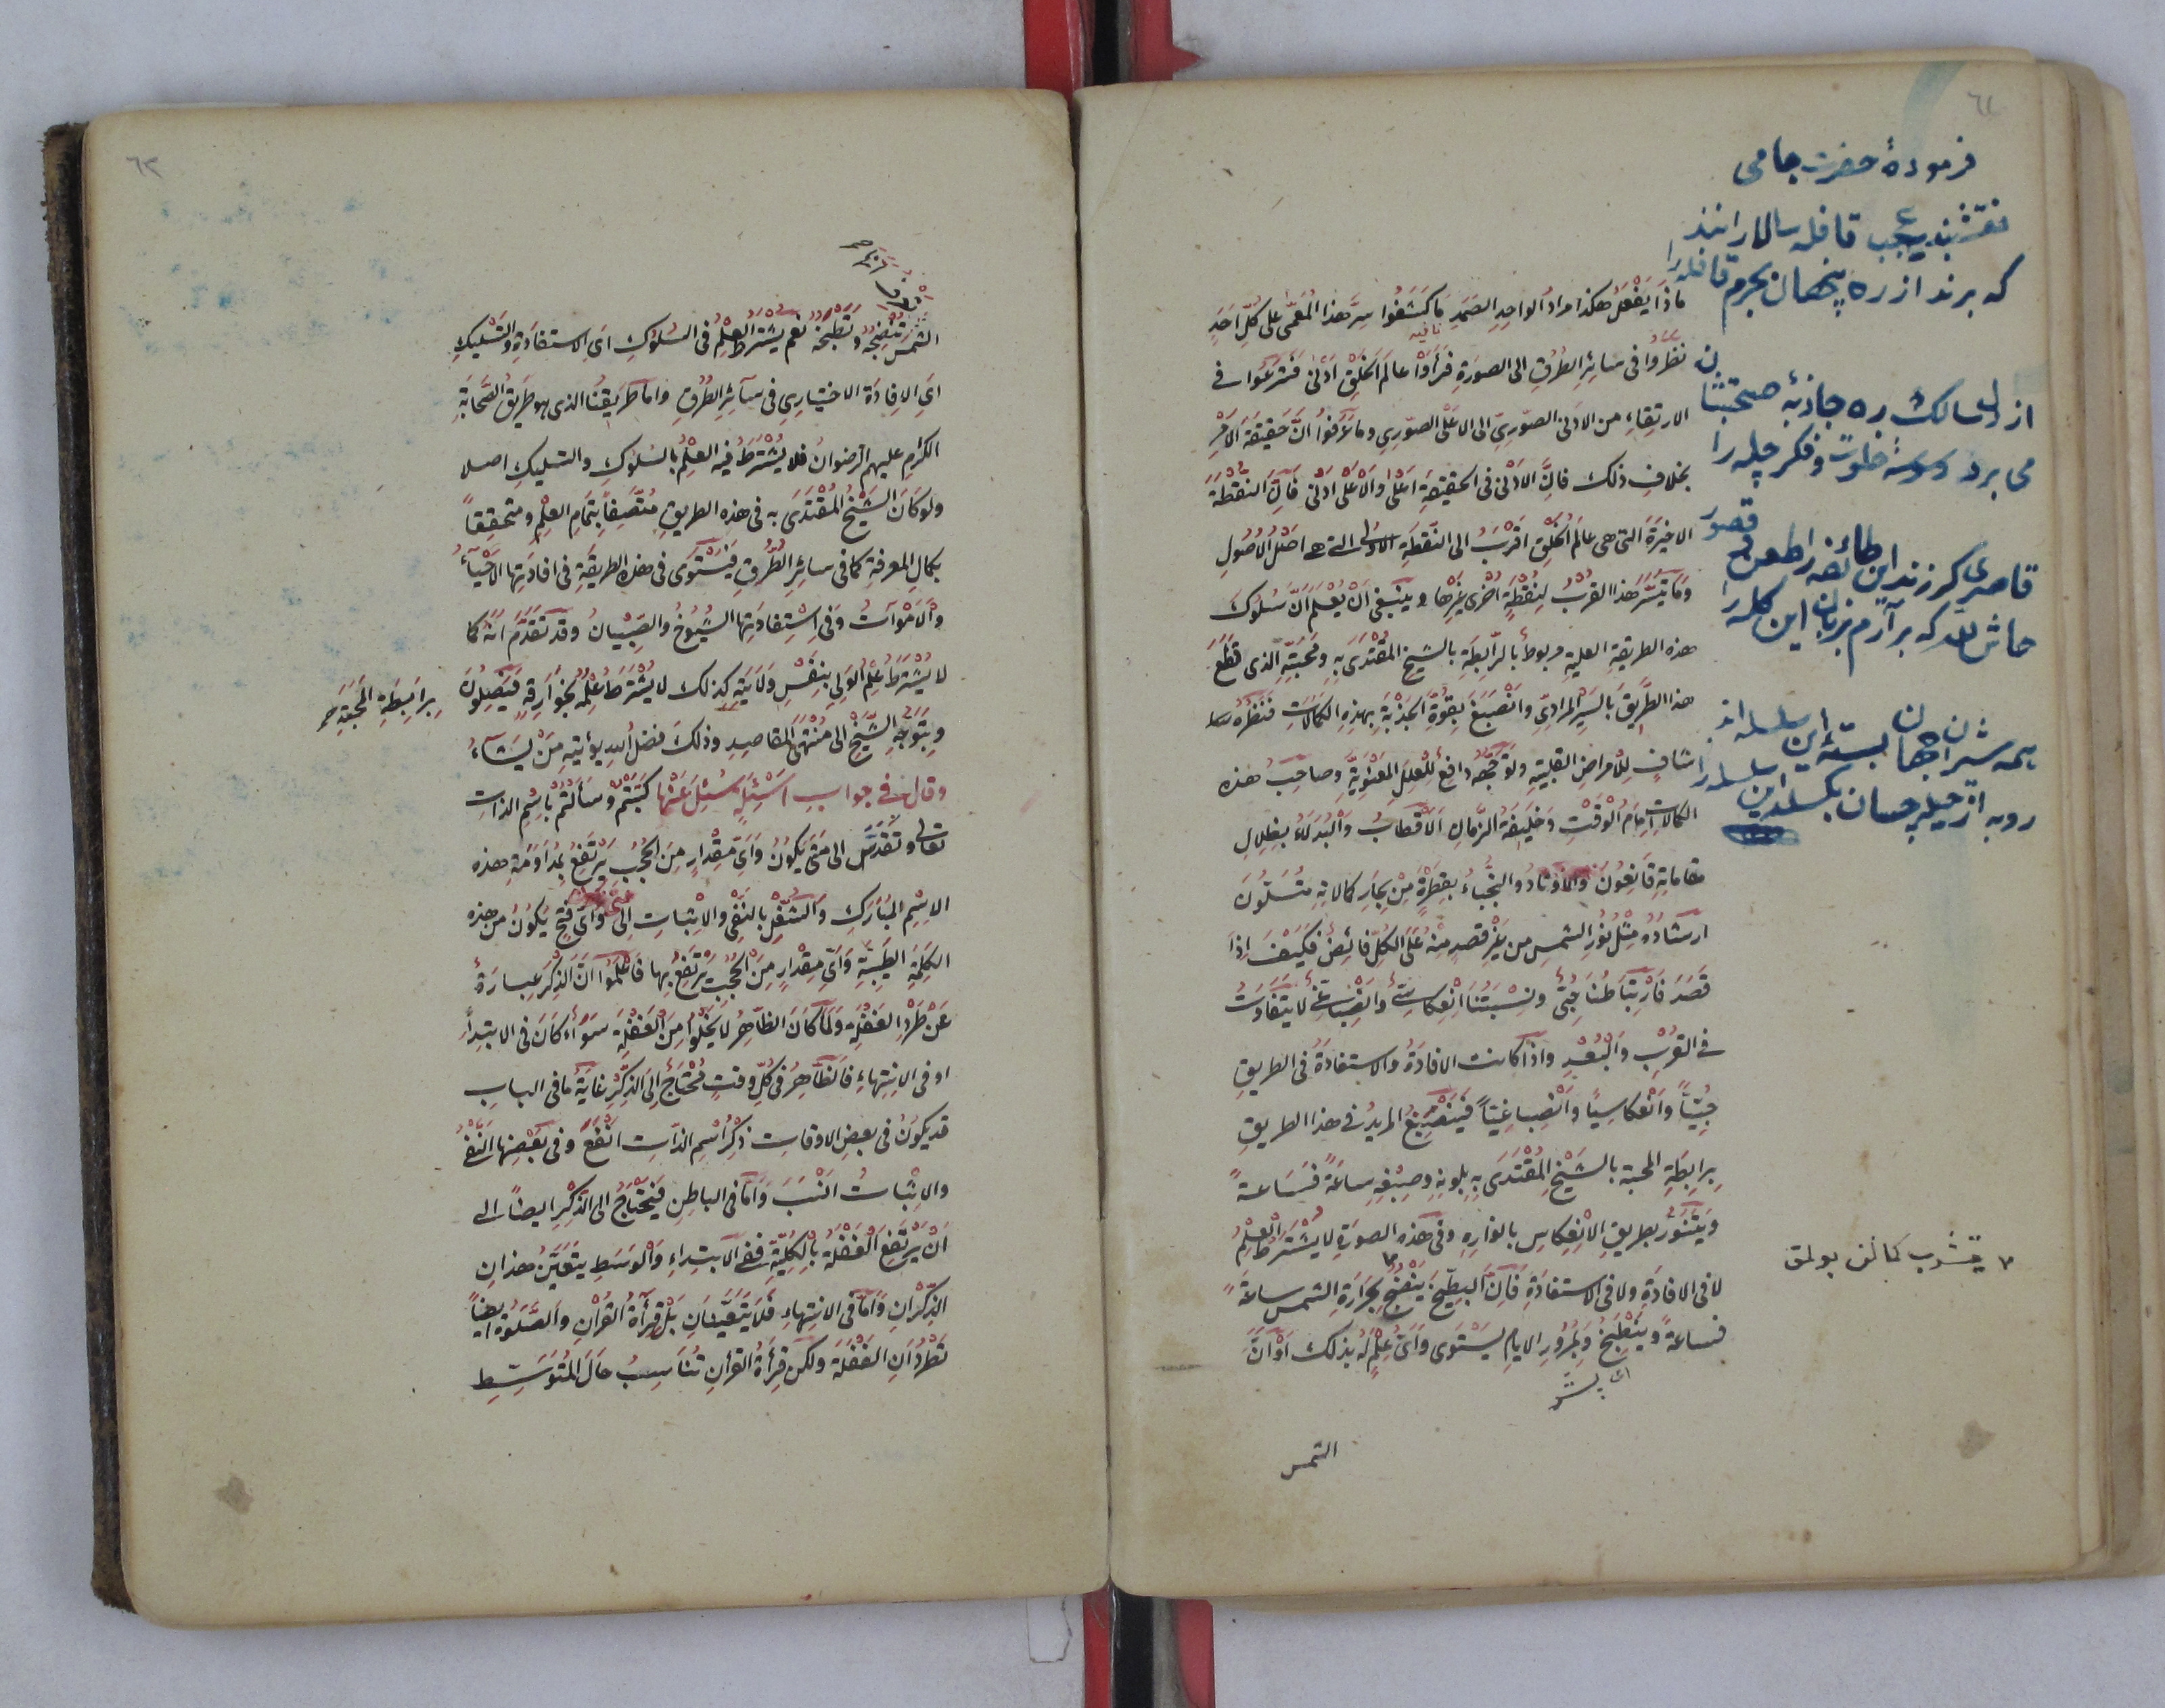 ٦٢
فرمودهٔ حضرت جامی
نقشبندیه عجب قافله سالارانند
که برند از ره پنهان بحرم قافله را
از دل سالک ره جاذبهٔ صحبتشان
می برد وسوسهٔ خلوت و فکر چله را
قاصری کر زند این طائفه را طعن قصور
حاش لله که بر آرم بزبان این کله را
همه شیران جهان بستهٔ این سلسله اند
روبه از حیله چسان بکسلد این سلسله را
ماذا يفعل هكذا مراد الواحد الصمد ما كشفوا سر هذا المعمى على كل احد
نظروا فى سائر الطرق الى الصورة فرأوا عالم الخلق ادنى فشرعوا في
الارتقاء من الادنى الصورى الى الاعلى الصورى وما عرفوا ان حقيقة الامر
بخلاف ذلك فان الادنى فى الحقيقة اعلى والاعلى ادنى فان النقطة
الاخيرة التى هى عالم الخلق اقرب الى النقطة الاولى التى هى اصل الاصول
وما تيسر هذا القرب لنقطة اخرى غيرها وينبغى ان يعلم ان سلوك
هذه الطريقة العلية مربوط بالرابطة بالشيخ المقتدى به ومحبته الذى قطع
هذا الطريق بالسير المرادى وانصبغ بقوة الجذبة بهذه الكمالات فنظره
شاف للامراض القلبية وتوجهه دافع للعلل المعنوية وصاحب هذه
الكمالات امام الوقت وخليفة الزمان الاقطاب والبدلاء بظلال
مقاماته قانعون والاوتاد والنجباء بقطرة من بحار كمالاته متسلون
ارشاده مثل نور الشمس من غير قصد منه على الكل فائض فكيف اذا
قصد فارتباطنا حبى ونسبتنا انعكاسى وانصباغى لا يتفاوت
في القرب والبعد واذا كانت الافادة والاستفادة فى الطريق
حبيا وانعكاسيا وانصباغيا فينصبغ المريد في هذا الطريق
برابطة المحبة بالشيخ المقتدى به بلونه وصبغه ساعة فساعة
ويتنور بطريق الانعكاس بانواره وفى هذه الصورة لا يشترط العلم
لا فى الافادة ولا فى الاستفادة فان البطيخ ينضج بحرارة الشمس ساعة
فساعة وينطبخ وبمرور الايام يستوى واى علم له بذلك او ان
الشمس
٦٣
الشمس تنضجه وتطبخه نعم يشترط العلم فى السلوك اى الاستفادة والتسليك
اى الافادة الاختيارى فى سائر الطرق واما طريقنا الذى هو طريق الصحابة
الكرم عليهم الرضوان فلا يشترط فيه العلم بالسلوك والتسليك اصلا
ولو كان الشيخ المقتدى به فى هذه الطريق متصفا بتمام العلم ومتحققا
بكمال المعرفة كما فى سائر الطرق فيستوى فى هذه الطريقة فى افادتها الاحياء
والاموات وفى استفادتها الشيوخ والصبيان وقد تقدم انه كما
لا يشترط علم الولى بنفس ولايته كذلك لا يشترط علمه بخوارقه فيصلون
برابطة المحبة صح
وبتوجه الشيخ الى منتهى المقاصد وذلك فضل الله يؤتيه من يشاء
وقال في جواب اسئلة سئل عنها كتبتم وسألتم باسم الذات
تعالى وتقدس الى متى يكون واى مقدار من الحجب يرتفع بمداومة هذه
الاسم المبارك والشغل بالنفى والاثبات الى متى واى فتح يكون من هذه
الكلمة الطيبة واى مقدار من الحجب يرتفع بها فاعلموا ان الذكر عبارة
عن طرد الغفلة ولما كان الظاهر لا يخلوا من الغفلة سواء كان فى الابتداء
او فى الانتهاء فالظاهر فى كل وقت محتاج الى الذكر غاية ما فى الباب
قد يكون فى بعض الاوقات ذكر اسم الذات انفع وفى بعضها النفى
والاثبات انسب واما فى الباطن فيحتاج الى الذكر ايضا الى
ان يرتفع الغفلة بالكلية ففى الابتداء والوسط يتعين هذان
الذكران واما فى الانتهاء فلا يتعينان بل قرأة القرآن والصلوة ايضا
تطردان الغفلة ولكن قرأة القرأن تناسب حال المتوسط